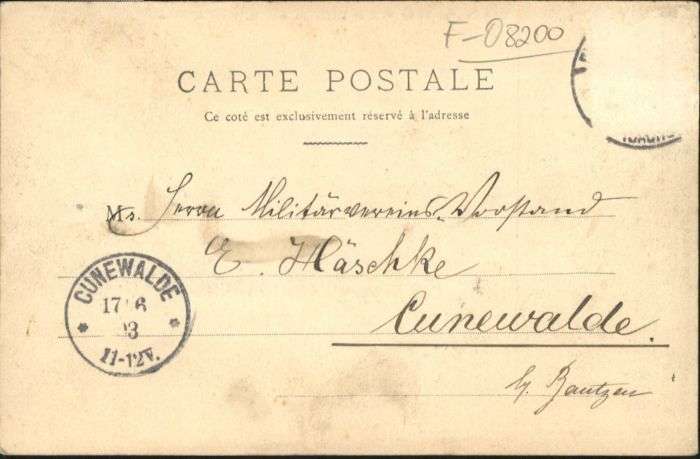 F-08200
CARTE POSTALE
Ce coté est exclusivement réservé à l'adresse
Ms. Herrn Militärvereins-Vorstand
E. Häschke
Cunewalde.
b/ Bautzen
CUNEWALDE
17 6
03
11-12V.